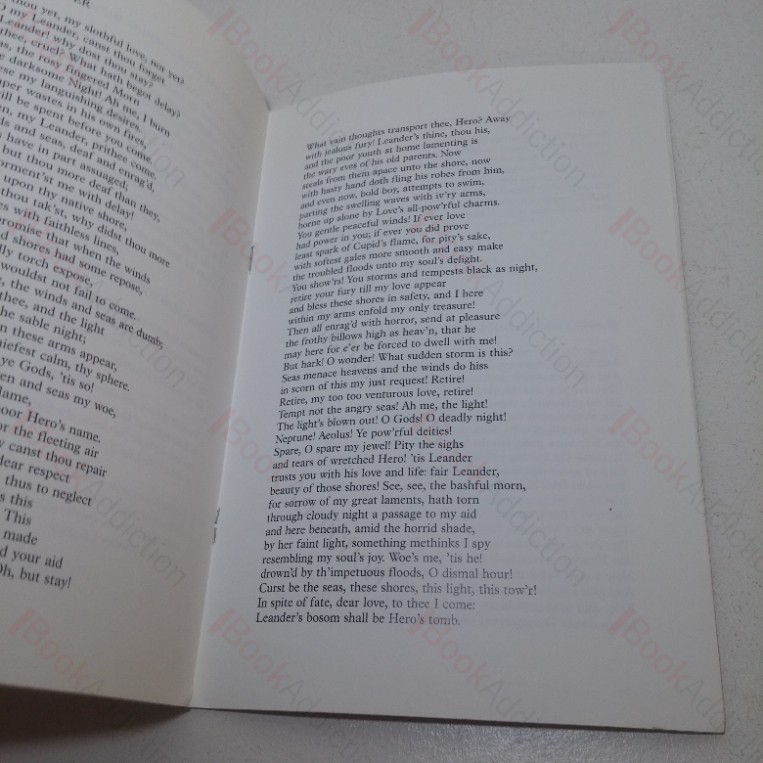 ER
thou yet, my slothful love, nor yet?
O my Leander, canst thou forget
Leander! why dost thou stay?
thee, cruel? What hath begot delay?
the rosy fingered Morn
darksome Night! Ah me, I burn
ese my languishing desires.
per wastes in his own fires,
ill be spent before you come.
en, my Leander, prithee come.
ds and seas, deaf and enrag'd,
have in part assuaged;
but thou more deaf than they,
orment'st me with delay!
upon thy native shore,
thou tak'st, why didst thou more
es with faithless lines,
promise that when the winds
d shores had some repose,
lly torch expose,
wouldst not fail to come.
the winds and seas are dumb,
thee, and the light
the sable night;
n these arms appear,
hiefest calm, thy sphere.
ye Gods, 'tis so!
en and seas my woe,
flame,
poor Hero's name.
or the fleeting air
y canst thou repair
dear respect
thus to neglect
s this
This
made
d your aid
Oh, but stay!
What vain thoughts transport thee, Hero? Away
with jealous fury! Leander's thine, thou his,
and the poor youth at home lamenting is
the wary eyes of his old parents. Now
steals from them apace unto the shore, now
with hasty hand doth fling his robes from him,
and even now, bold boy, attempts to swim,
parting the swelling waves with iv'ry arms,
borne up alone by Love's all-pow'rful charms.
You gentle peaceful winds! If ever love
had power in you; if ever you did prove
least spark of Cupid's flame, for pity's sake,
with softest gales more smooth and easy make
the troubled floods unto my soul's delight.
You show'rs! You storms and tempests black as night,
retire your fury till my love appear
and bless these shores in safety, and I here
within my arms enfold my only treasure!
Then all enrag'd with horror, send at pleasure
the frothy billows high as heav'n, that he
may here for e'er be forced to dwell with me!
But hark! O wonder! What sudden storm is this?
Seas menace heavens and the winds do hiss
in scorn of this my just request! Retire!
Retire, my too too venturous love, retire!
Tempt not the angry seas! Ah me, the light!
The light's blown out! O Gods! O deadly night!
Neptune! Aeolus! Ye pow'rful deities!
Spare, O spare my jewel! Pity the sighs
and tears of wretched Hero! 'tis Leander
trusts you with his love and life: fair Leander,
beauty of those shores! See, see, the bashful morn,
for sorrow of my great laments, hath torn
through cloudy night a passage to my aid
and here beneath, amid the horrid shade,
by her faint light, something methinks I spy
resembling my soul's joy. Woe's me, 'tis he!
drown'd by th'impetuous floods, O dismal hour!
Curst be the seas, these shores, this light, this tow'r!
In spite of fate, dear love, to thee I come:
Leander's bosom shall be Hero's tomb.
BookAddiction